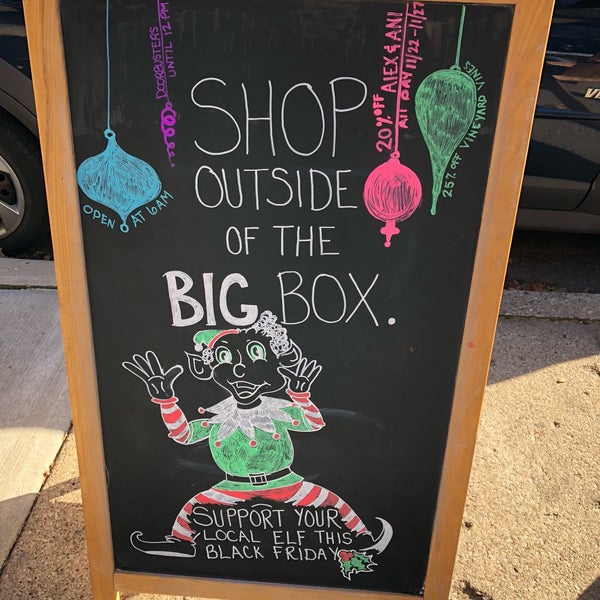 OPEN AT 6AM
DOORBUSTERS
UNTIL 12 PM
20% OFF ALEX & ANI
All DAY 11/22-11/27
25% OFF VINEYARD VINES
SHOP
OUTSIDE
OF THE
BIG BOX.
SUPPORT YOUR
LOCAL ELF THIS
BLACK FRIDAY